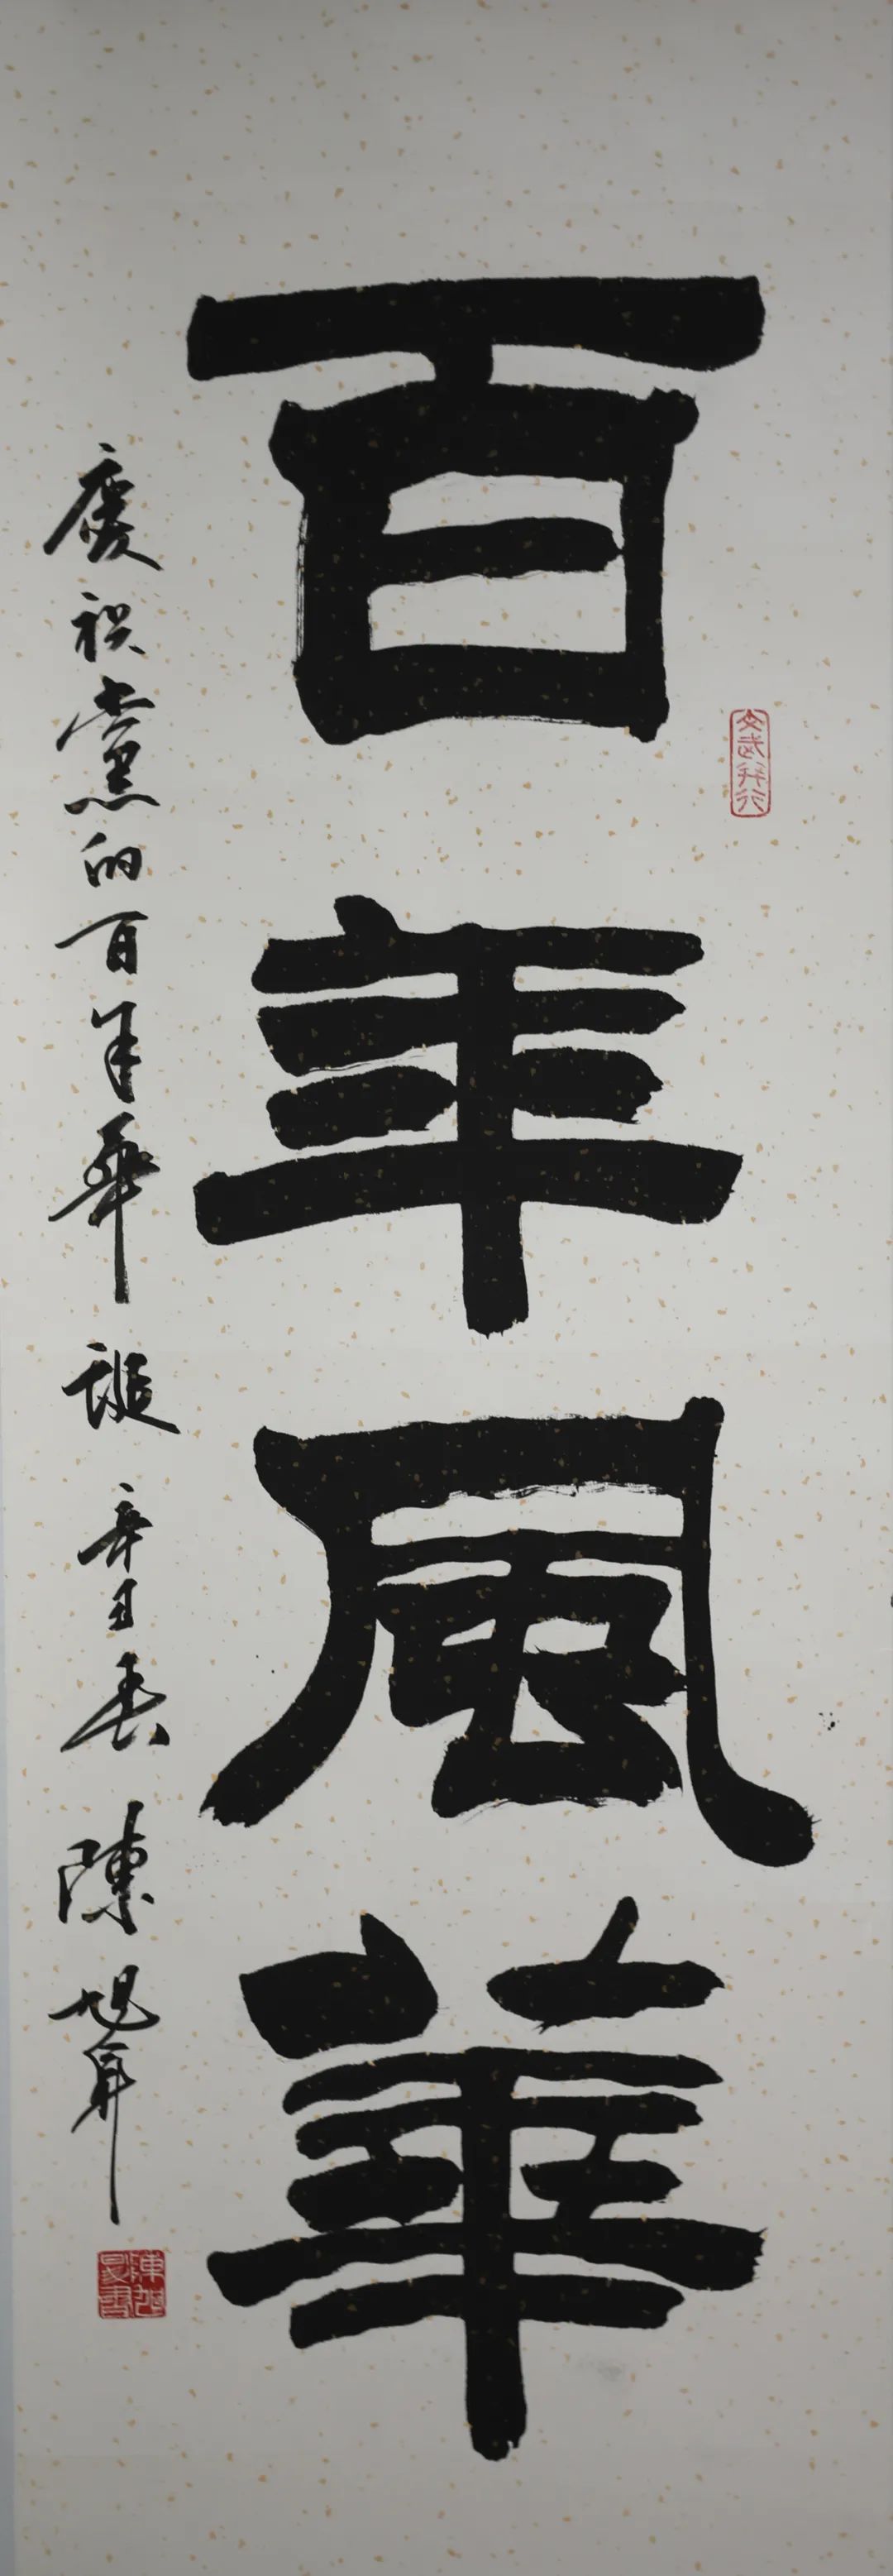 百年風華
慶祝黨的百年華誕 辛丑春 陳旭昇
文武并行
陳旭昇書